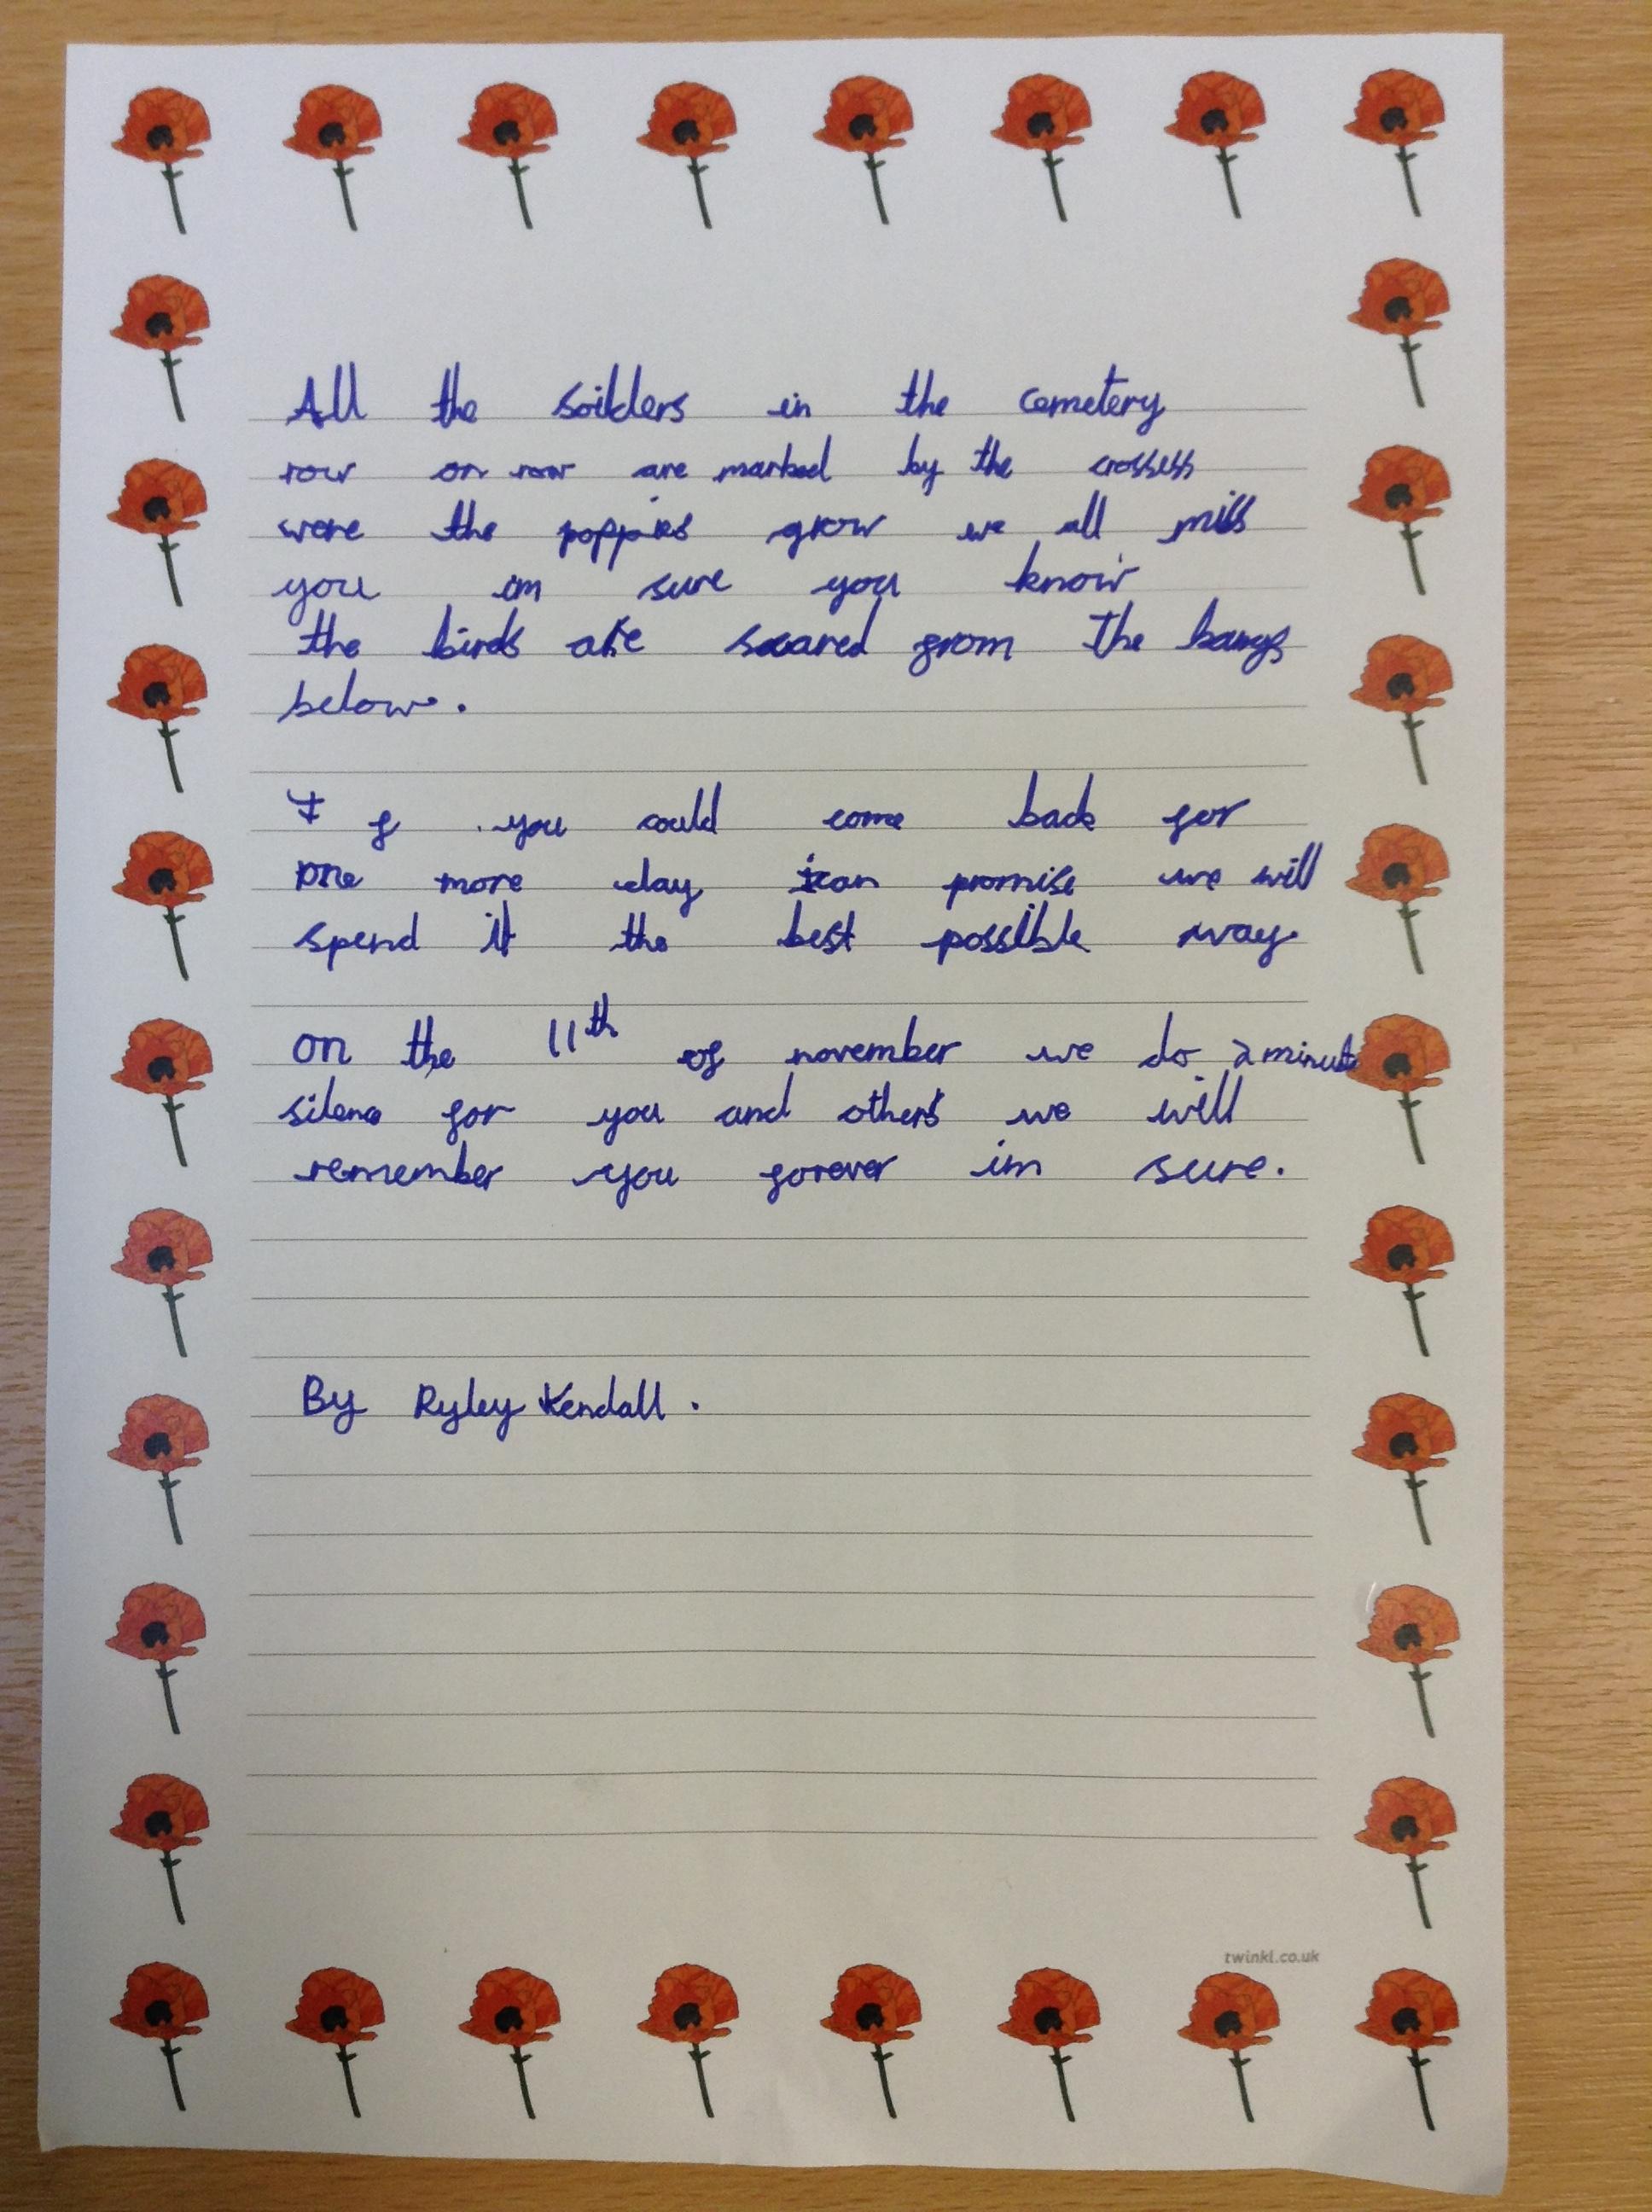 All the soilders in the cemetery
row on row are marked by the crossess
were the poppies grow we all miss
you im sure you know
the birds are scared from the bangs
below.
If you could come back for
one more day ican promise we will
spend it the best possible way
on the 11th of november we do 2 minute
silence for you and others we will
remember you forever im sure.
By Ryley Kendall.
twinkl.co.uk